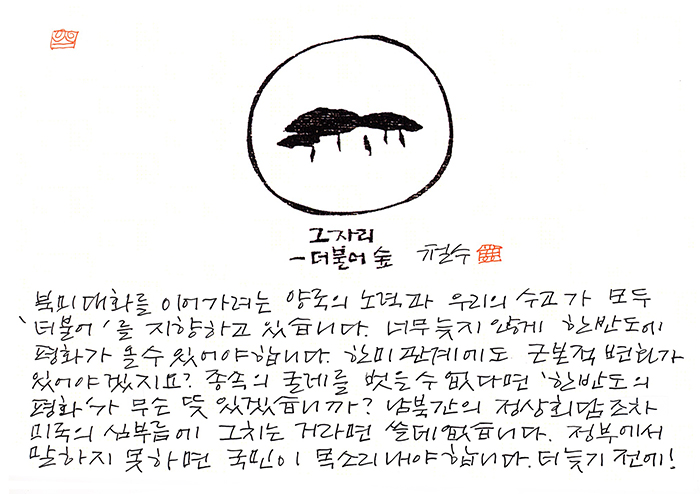 그 자리
- 더불어 숲 철수
북미대화를 이어가려는 양국의 노력과 우리의 수고가 모두
'더불어'를 지향하고 있습니다. 너무 늦지 않게 한반도에
평화가 올 수 있어야 합니다. 한미관계에도 근본적 변화가
있어야겠지요? 종속의 굴레를 벗을 수 없다면 '한반도의
평화'가 무슨 뜻 있겠습니까? 남북간의 정상회담조차
미국의 심부름에 그치는 거라면 쓸데없습니다. 정부에서
말하지 못하면 국민이 목소리 내야 합니다. 더 늦기 전에!